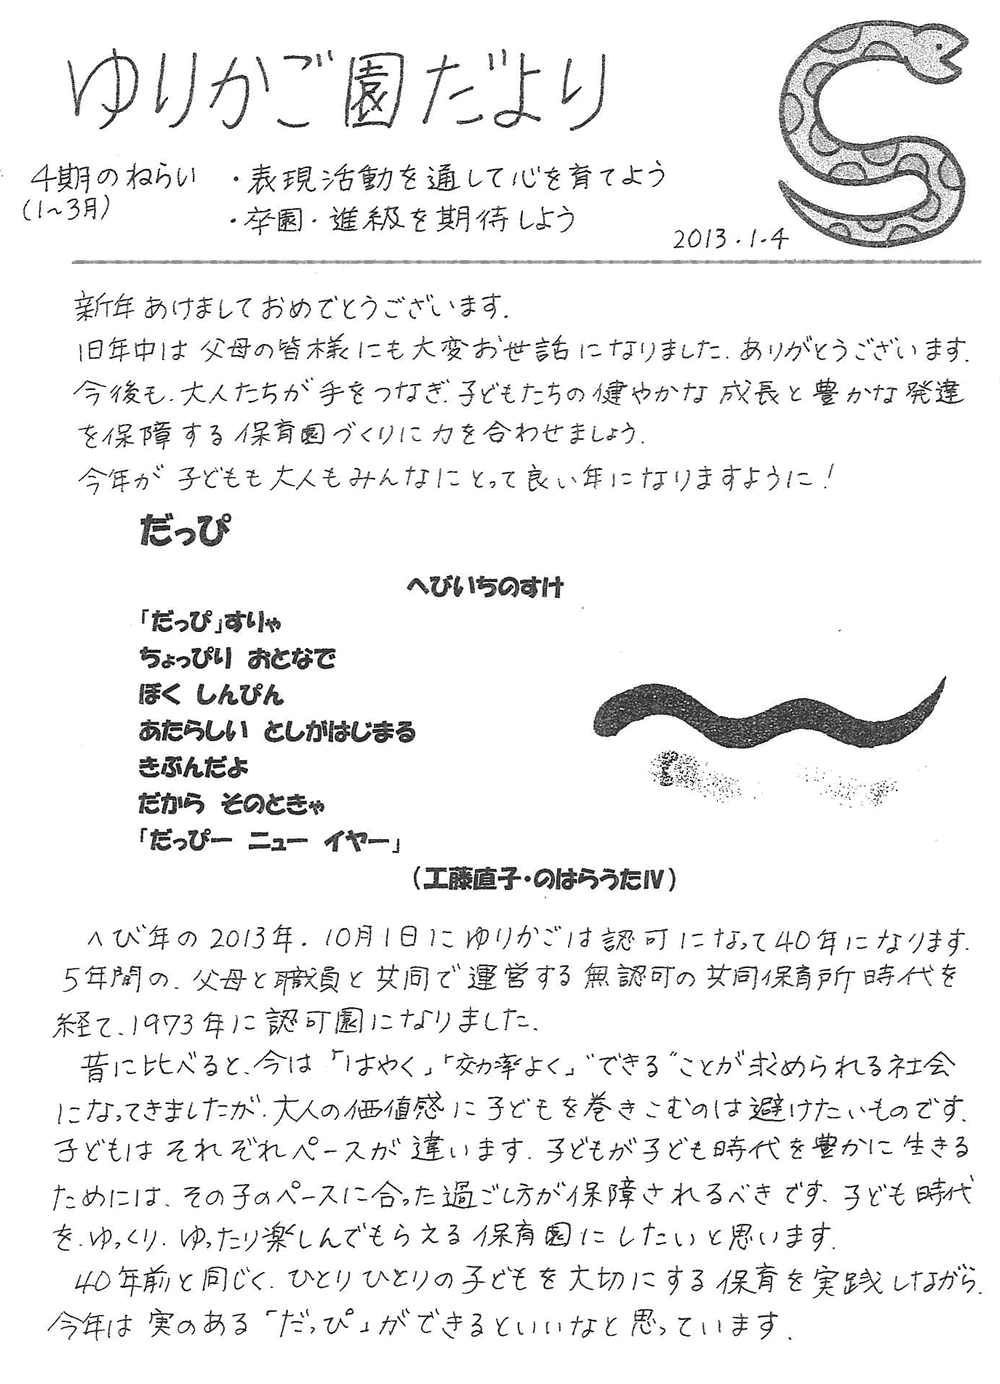 ゆりかご園だより
4期のねらい ・表現活動を通して心を育てよう
(1〜3月) ・卒園・進級を期待しよう
2013.1.4
新年あけましておめでとうございます.
旧年中は父母の皆様にも大変お世話になりました.ありがとうございます.
今後も、大人たちが手をつなぎ、子どもたちの健やかな成長と豊かな発達
を保障する保育園づくりに力を合わせましょう.
今年が子どもも大人もみんなにとって良い年になりますように!
だっぴ
へびいちのすけ
「だっぴ」すりゃ
ちょっぴり おとなで
ぼく しんぴん
あたらしい としがはじまる
きぶんだよ
だから そのときゃ
「だっぴー ニュー イヤー」
(工藤直子・のはらうたⅣ)
へび年の2013年.10月1日にゆりかごは認可になって40年になります.
5年間の、父母と職員と共同で運営する無認可の共同保育所時代を
経て、1973年に認可園になりました.
昔に比べると、今は「はやく」「効率よく」"できる"ことが求められる社会
になってきましたが、大人の価値感に子どもを巻きこむのは避けたいものです.
子どもはそれぞれペースが違います.子どもが子ども時代を豊かに生きる
ためには、その子のペースに合った過ごし方が保障されるべきです.子ども時代
を、ゆっくり、ゆったり楽しんでもらえる保育園にしたいと思います.
40年前と同じく、ひとりひとりの子どもを大切にする保育を実践しながら、
今年は実のある「だっぴ」ができるといいなと思っています.